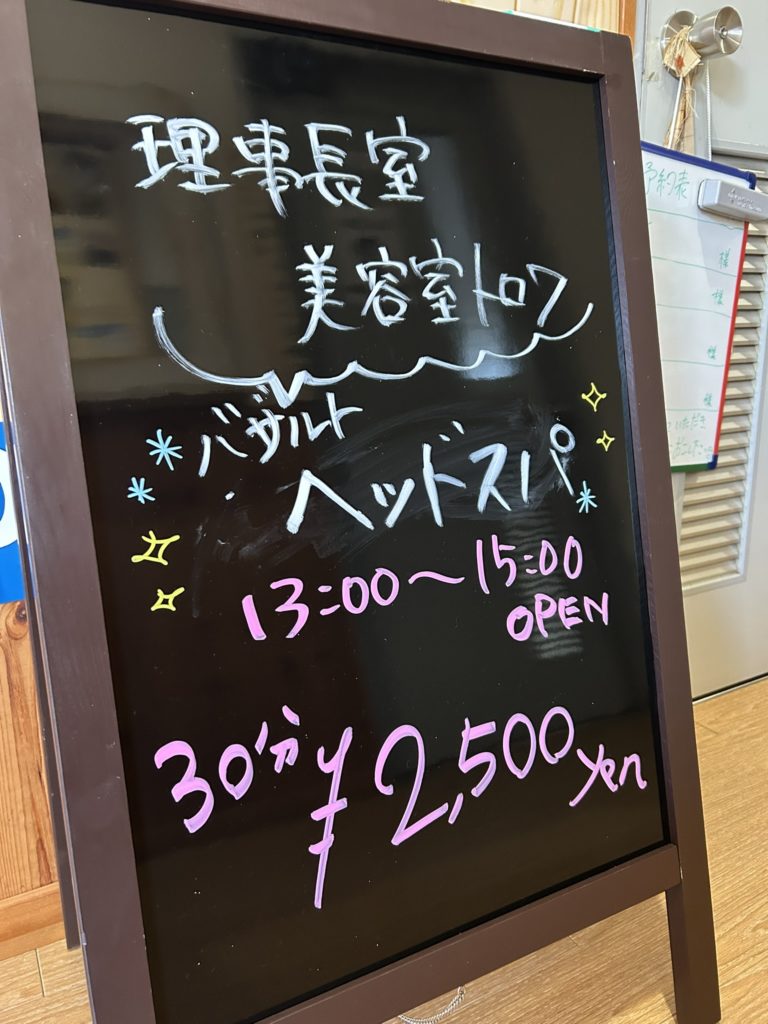 理事長室
美容室トロワ
バザルト
ヘッドスパ
13:00〜15:00
OPEN
30分 ¥2,500 yen
予約表
様
様
様
様